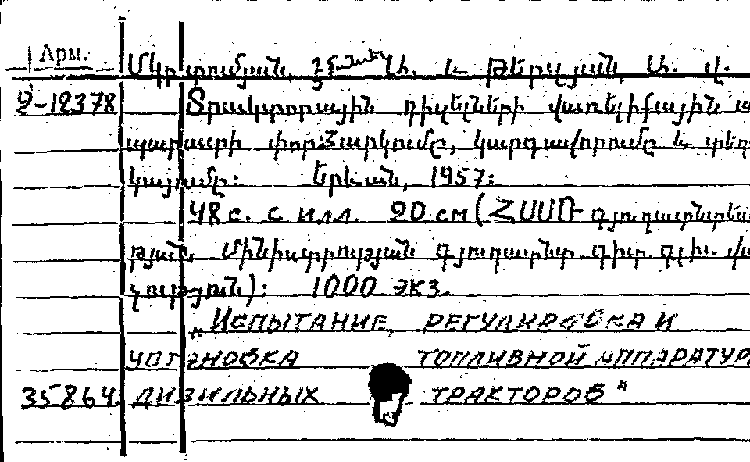 Арм.
Մկրտումյան, Ա. և Թերզյան, Ա. Վ.
2-12378 Տրակտորային դիզելների վառելիքային ա
պարատի փորձարկումը, կարգավորումը և տեղա
կայումը: Երևան, 1957:
48 с. с илл. 20 см (ՀՍՍՌ գյուղատնտես
թյան մինիստրության գյուղատնտ. գիտ.
չություն): 1000 экз.
„Испытание, регулировка и
установка топливной аппаратур
35864 дизильных тракторов“